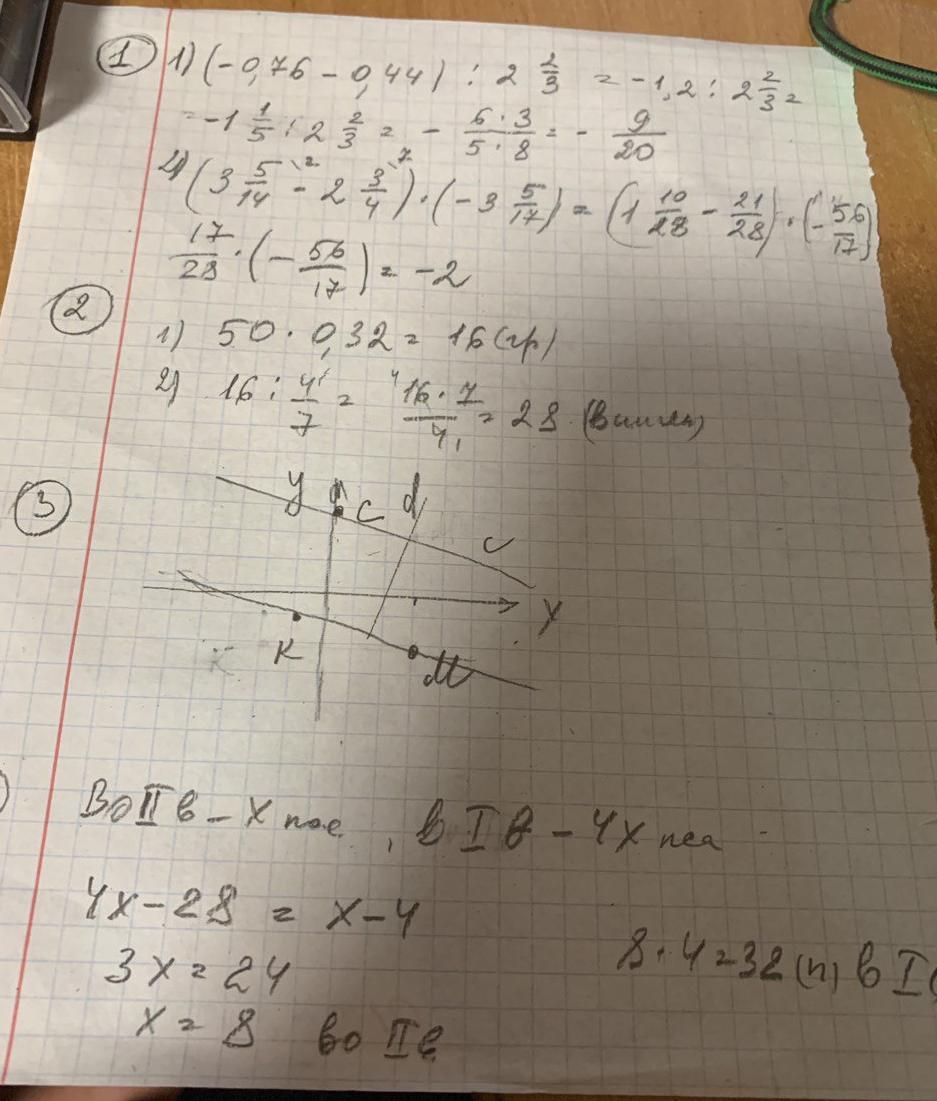 ① 1) (-0,76 - 0,44) : 2 2/3 = -1,2 : 2 2/3 =
= -1 1/5 : 2 2/3 = - 6·3/5·8 = - 9/20
2) (3 5/14 \2 - 2 3/4 \7) · (-3 5/17) = (1 10/28 - 21/28) · (-56/17)
17/28 · (-56/17) = -2
②
1) 50 · 0,32 = 16 (гр)
2) 16 : 4/7 = 16·7/4 = 28
③
y C d c
X
K M
Во II в - X , в I в - 4X
4x - 28 = x - 4
3x = 24
8·4=32 (п) в I
x = 8 во II в